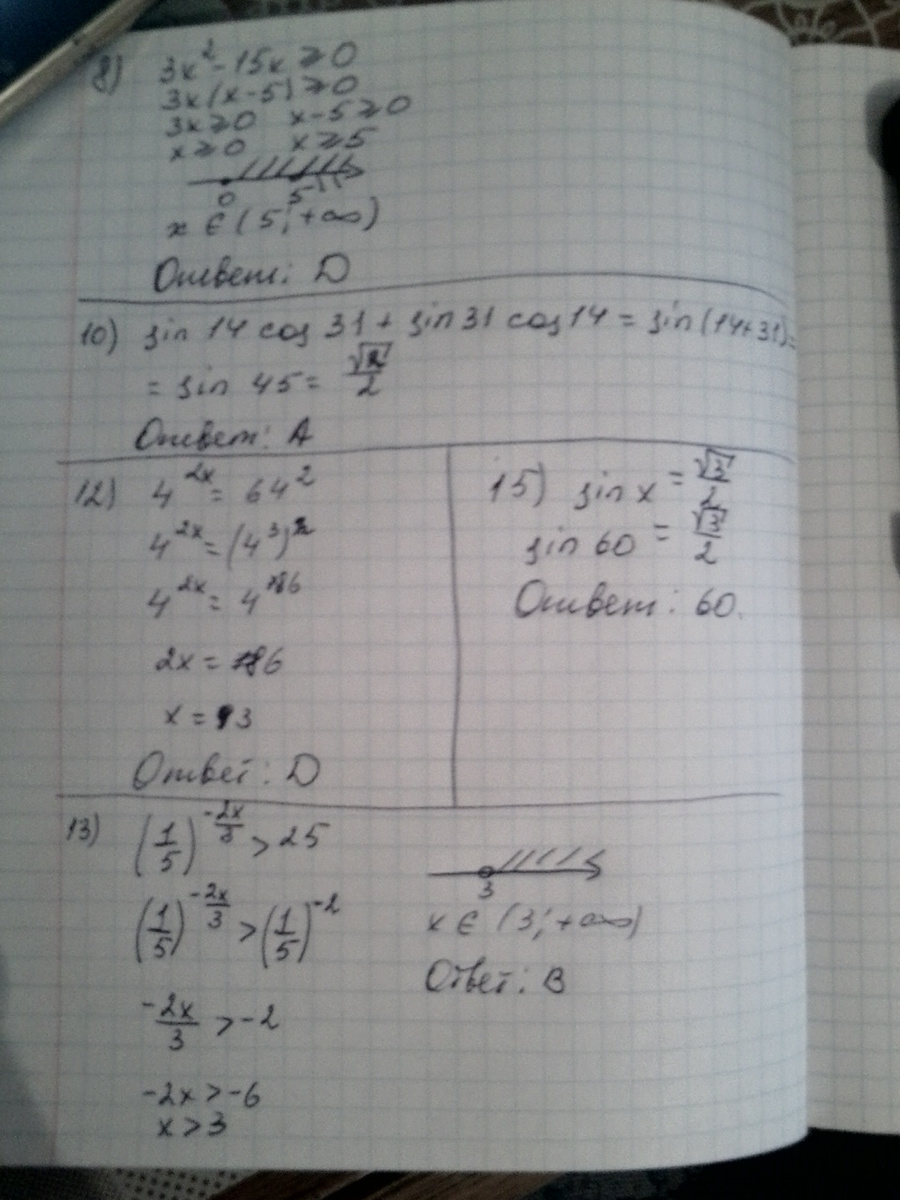 8) 3x² - 15x ⩾ 0
3x(x-5) ⩾ 0
3x ⩾ 0 x-5 ⩾ 0
x ⩾ 0 x ⩾ 5
0 5
x ∈ (5; +∞)
Ответ: D
10) sin 14 cos 31 + sin 31 cos 14 = sin(14+31) =
= sin 45 = √2/2
Ответ: A
12) 4^2x = 64^2
4^2x = (4^3)^2
4^2x = 4^6
2x = 6
x = 3
Ответ: D
15) sin x = √3/2
sin 60 = √3/2
Ответ: 60.
13) (1/5)^-2x/3 > 25
(1/5)^-2x/3 > (1/5)^-2
-2x/3 > -2
-2x > -6
x > 3
3
x ∈ (3; +∞)
Ответ: B